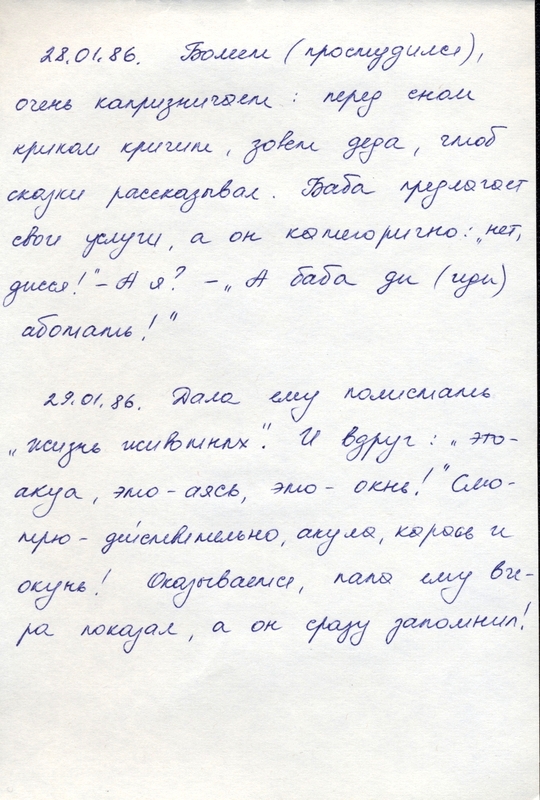 28.01.86. Болеет (простудился),
очень капризничает: перед сном
криком кричит, зовет деда, чтоб
сказки рассказывал. Баба предлагает
свои услуги, а он категорично: „нет,
дисся!" – А я? – „А баба ди (иди)
аботать!"
29.01.86. Дала ему полистать
„Жизнь животных". И вдруг: „это-
акуа, это-аясь, это- окнь!" Смо-
трю- действительно, акула, карась и
окунь! Оказывается, папа ему вче-
ра показал, а он сразу запомнил!